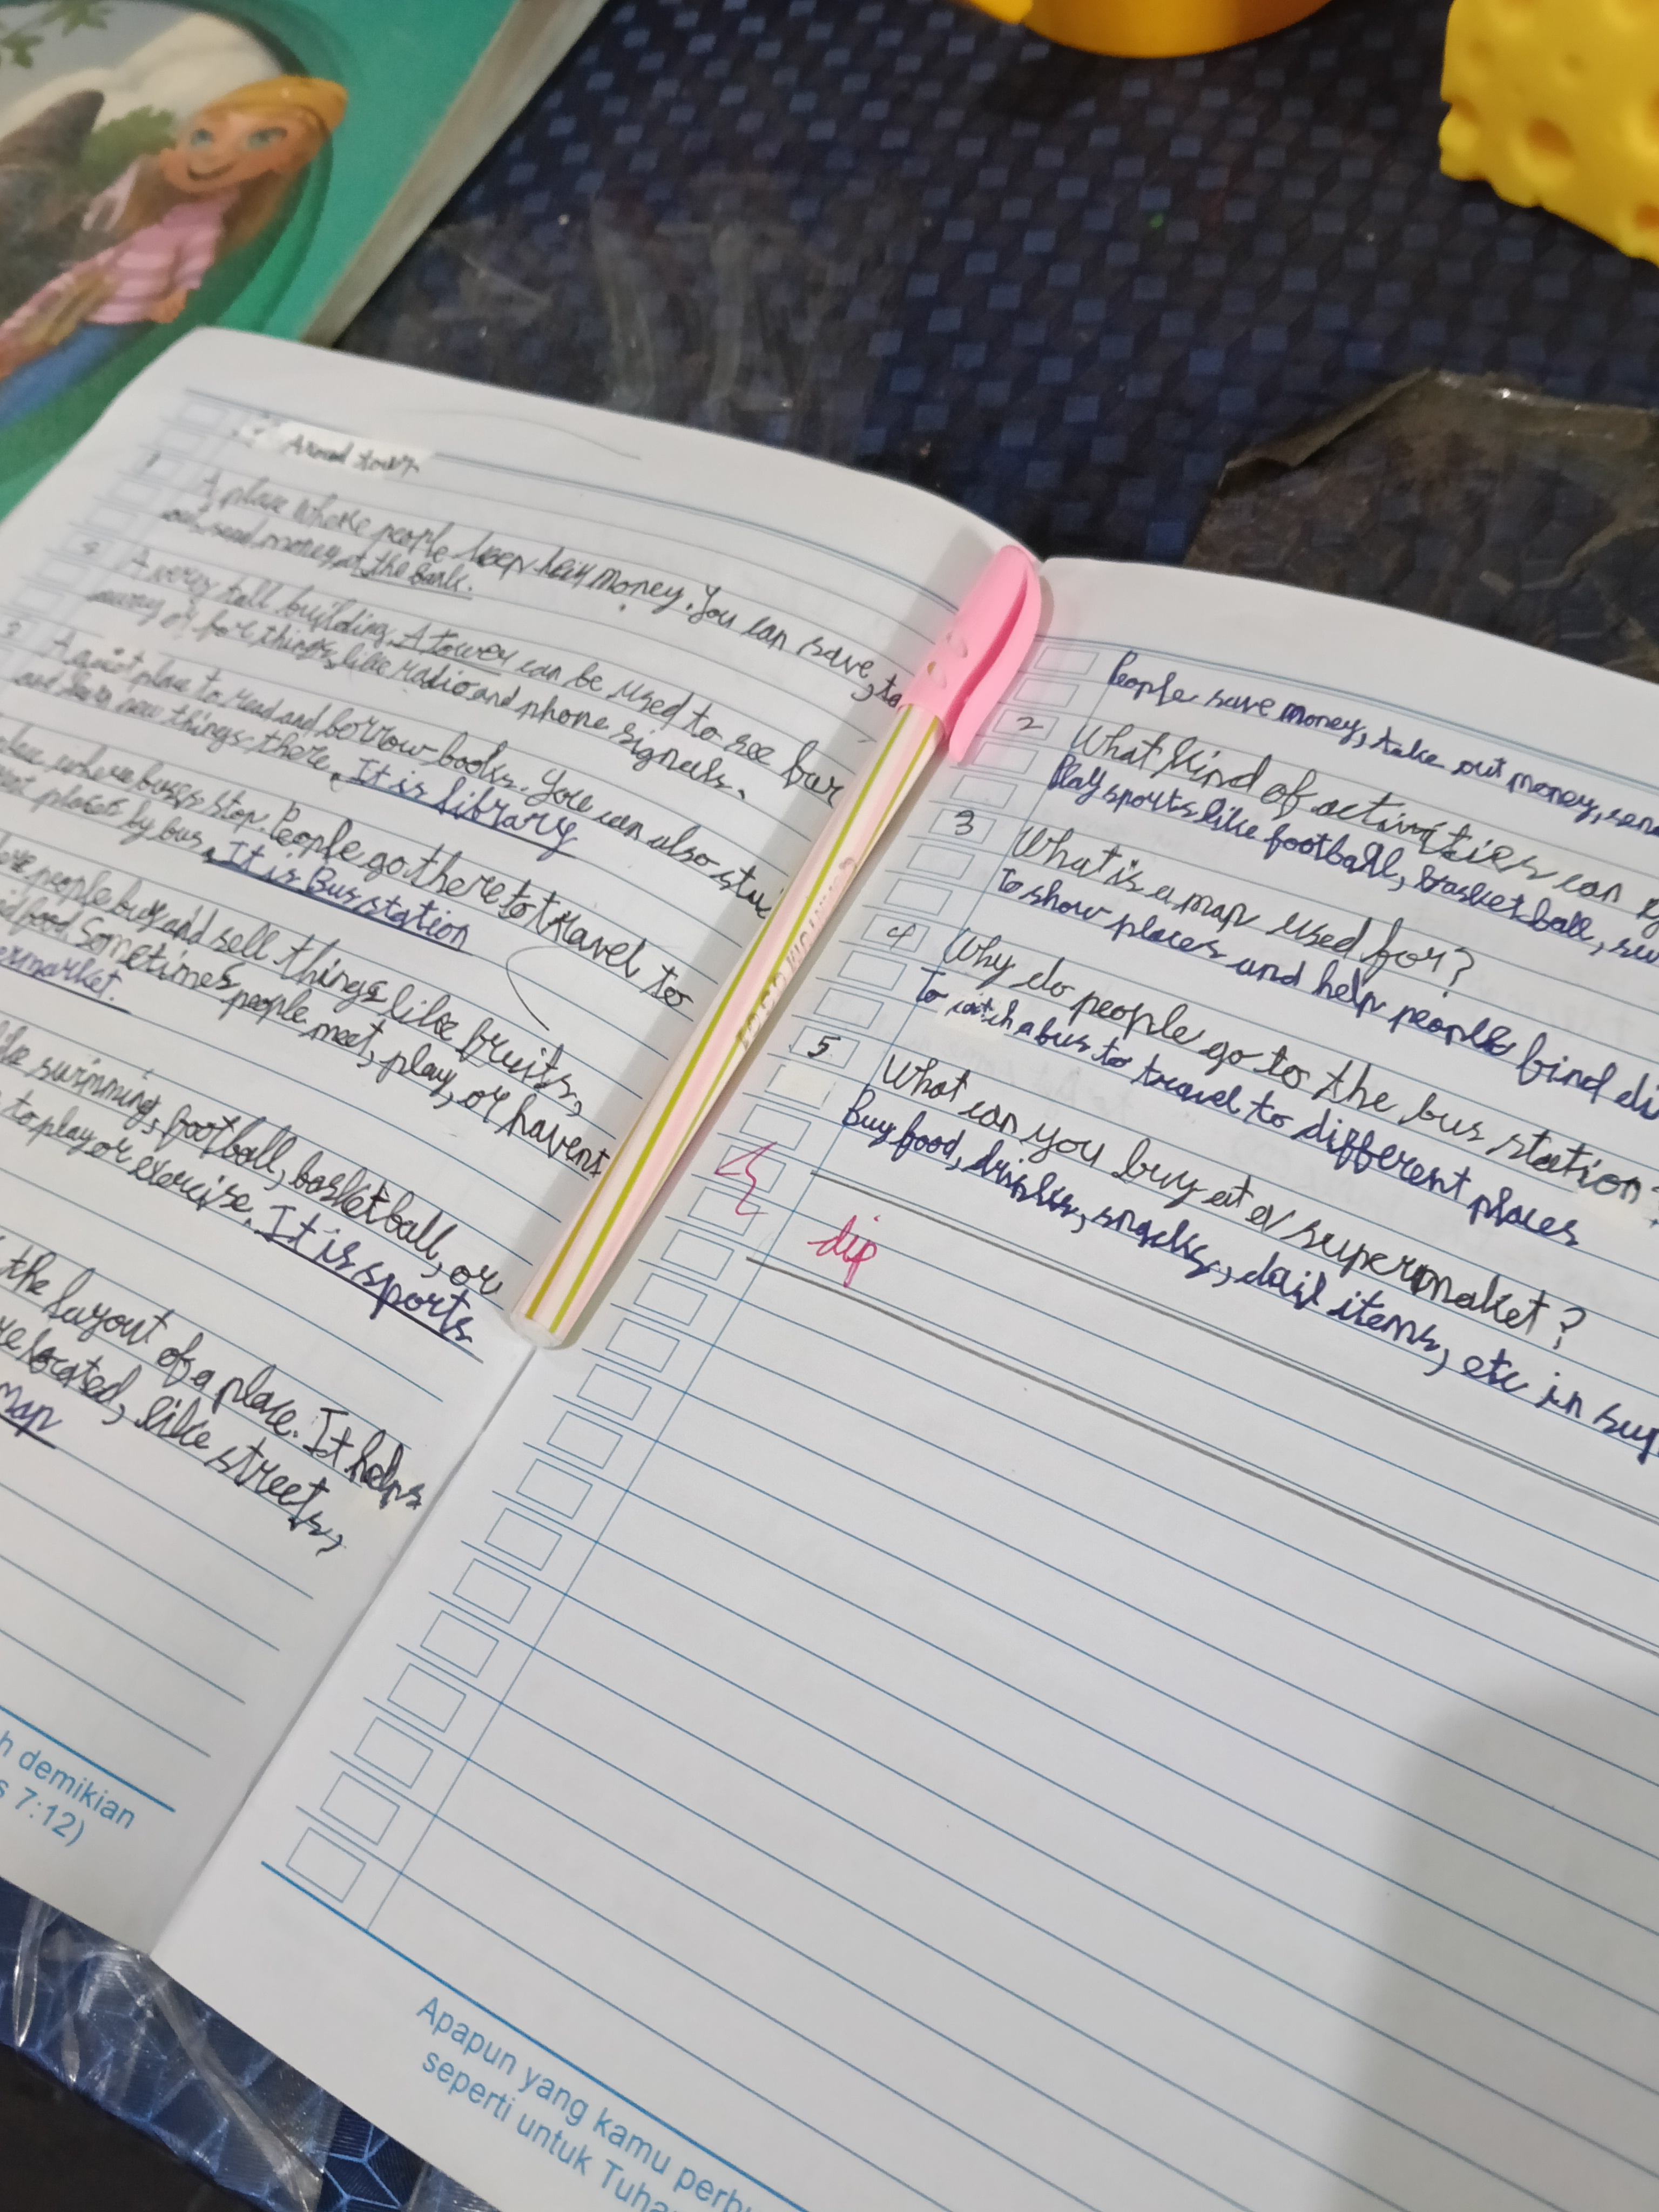 Around town
1 A place where people keep their money. You can save, ta
and send money at the bank.
2 A very tall building. A tower can be used to see far
away or for things like radio and phone signals.
3 A quiet place to read and borrow books. You can also stu
and learn new things there. It is library
place where buses stop. People go there to travel to
places by bus. It is Bus station
people buy and sell things like fruits,
food. Sometimes people meet, play, or have
ermarket.
like swimming, football, basketball, or
to play or exercise. It is sports
the layout of a place. It helps
located, like streets,
map
h demikian
s 7:12)
People save money, take out money, sen
2 What kind of activities can y
Play sports like football, basketball, sw
3 What is a map used for?
To show places and help people find di
4 Why do people go to the bus station?
To catch a bus to travel to different places
5 What can you buy at a supermaket?
Buy food, drinks, snacks, dail items, etc in sup
dip
Apapun yang kamu perb
seperti untuk Tuha